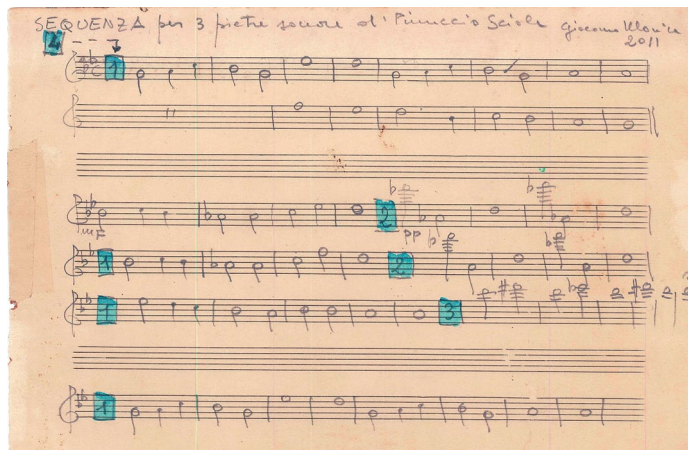 SEQUENZA per 3 pietre sonore di Pinuccio Sciola Giacomo
2011
1
2
mF
pp
1
2
1
3
1